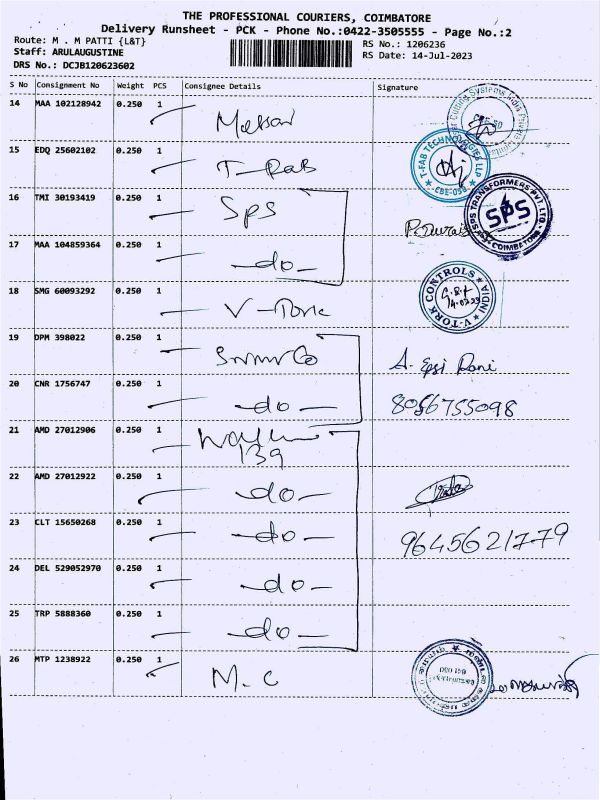 THE PROFESSIONAL COURIERS, COIMBATORE
Delivery Runsheet - PCK - Phone No.:0422-3505555 - Page No.:2
Route: M . M PATTI {L&T}
RS No.: 1206236
Staff: ARULAUGUSTINE
RS Date: 14-Jul-2023
DRS No.: DCJB120623602
S No Consignment No Weight PCS Consignee Details Signature
14 MAA 102128942 0.250 1
15 EDQ 25602102 0.250 1 T-Fab
T-FAB TECHNOLOGIES LLP
CBE-050
16 TMI 30193419 0.250 1 SPS
SPS TRANSFORMERS PVT. LTD.
SPS
COIMBATORE
17 MAA 104859364 0.250 1 -do-
18 SMG 60093292 0.250 1 V-Tork
V-TORK CONTROLS
INDIA
19 DPM 398022 0.250 1
A. Epsi Rani
20 CNR 1756747 0.250 1 -do-
8056755098
21 AMD 27012906 0.250 1
139
22 AMD 27012922 0.250 1 -do-
23 CLT 15650268 0.250 1 -do-
9645621779
24 DEL 529052970 0.250 1 -do-
25 TRP 5888360 0.250 1 -do-
26 MTP 1238922 0.250 1 M.C